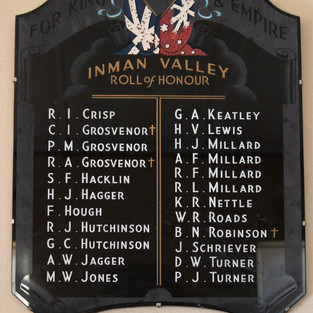 FOR KING & EMPIRE
INMAN VALLEY
ROLL of HONOUR
R.I. CRISP
C.I. GROSVENOR †
P.M. GROSVENOR
R.A. GROSVENOR †
S.F. HACKLIN
H.J. HAGGER
F. HOUGH
R.J. HUTCHINSON
G.C. HUTCHINSON
A.W. JAGGER
M.W. JONES
G.A. KEATLEY
H.V. LEWIS
H.J. MILLARD
A.F. MILLARD
R.F. MILLARD
R.L. MILLARD
K.R. NETTLE
W.R. ROADS
B.N. ROBINSON †
J. SCHRIEVER
D.W. TURNER
P.J. TURNER